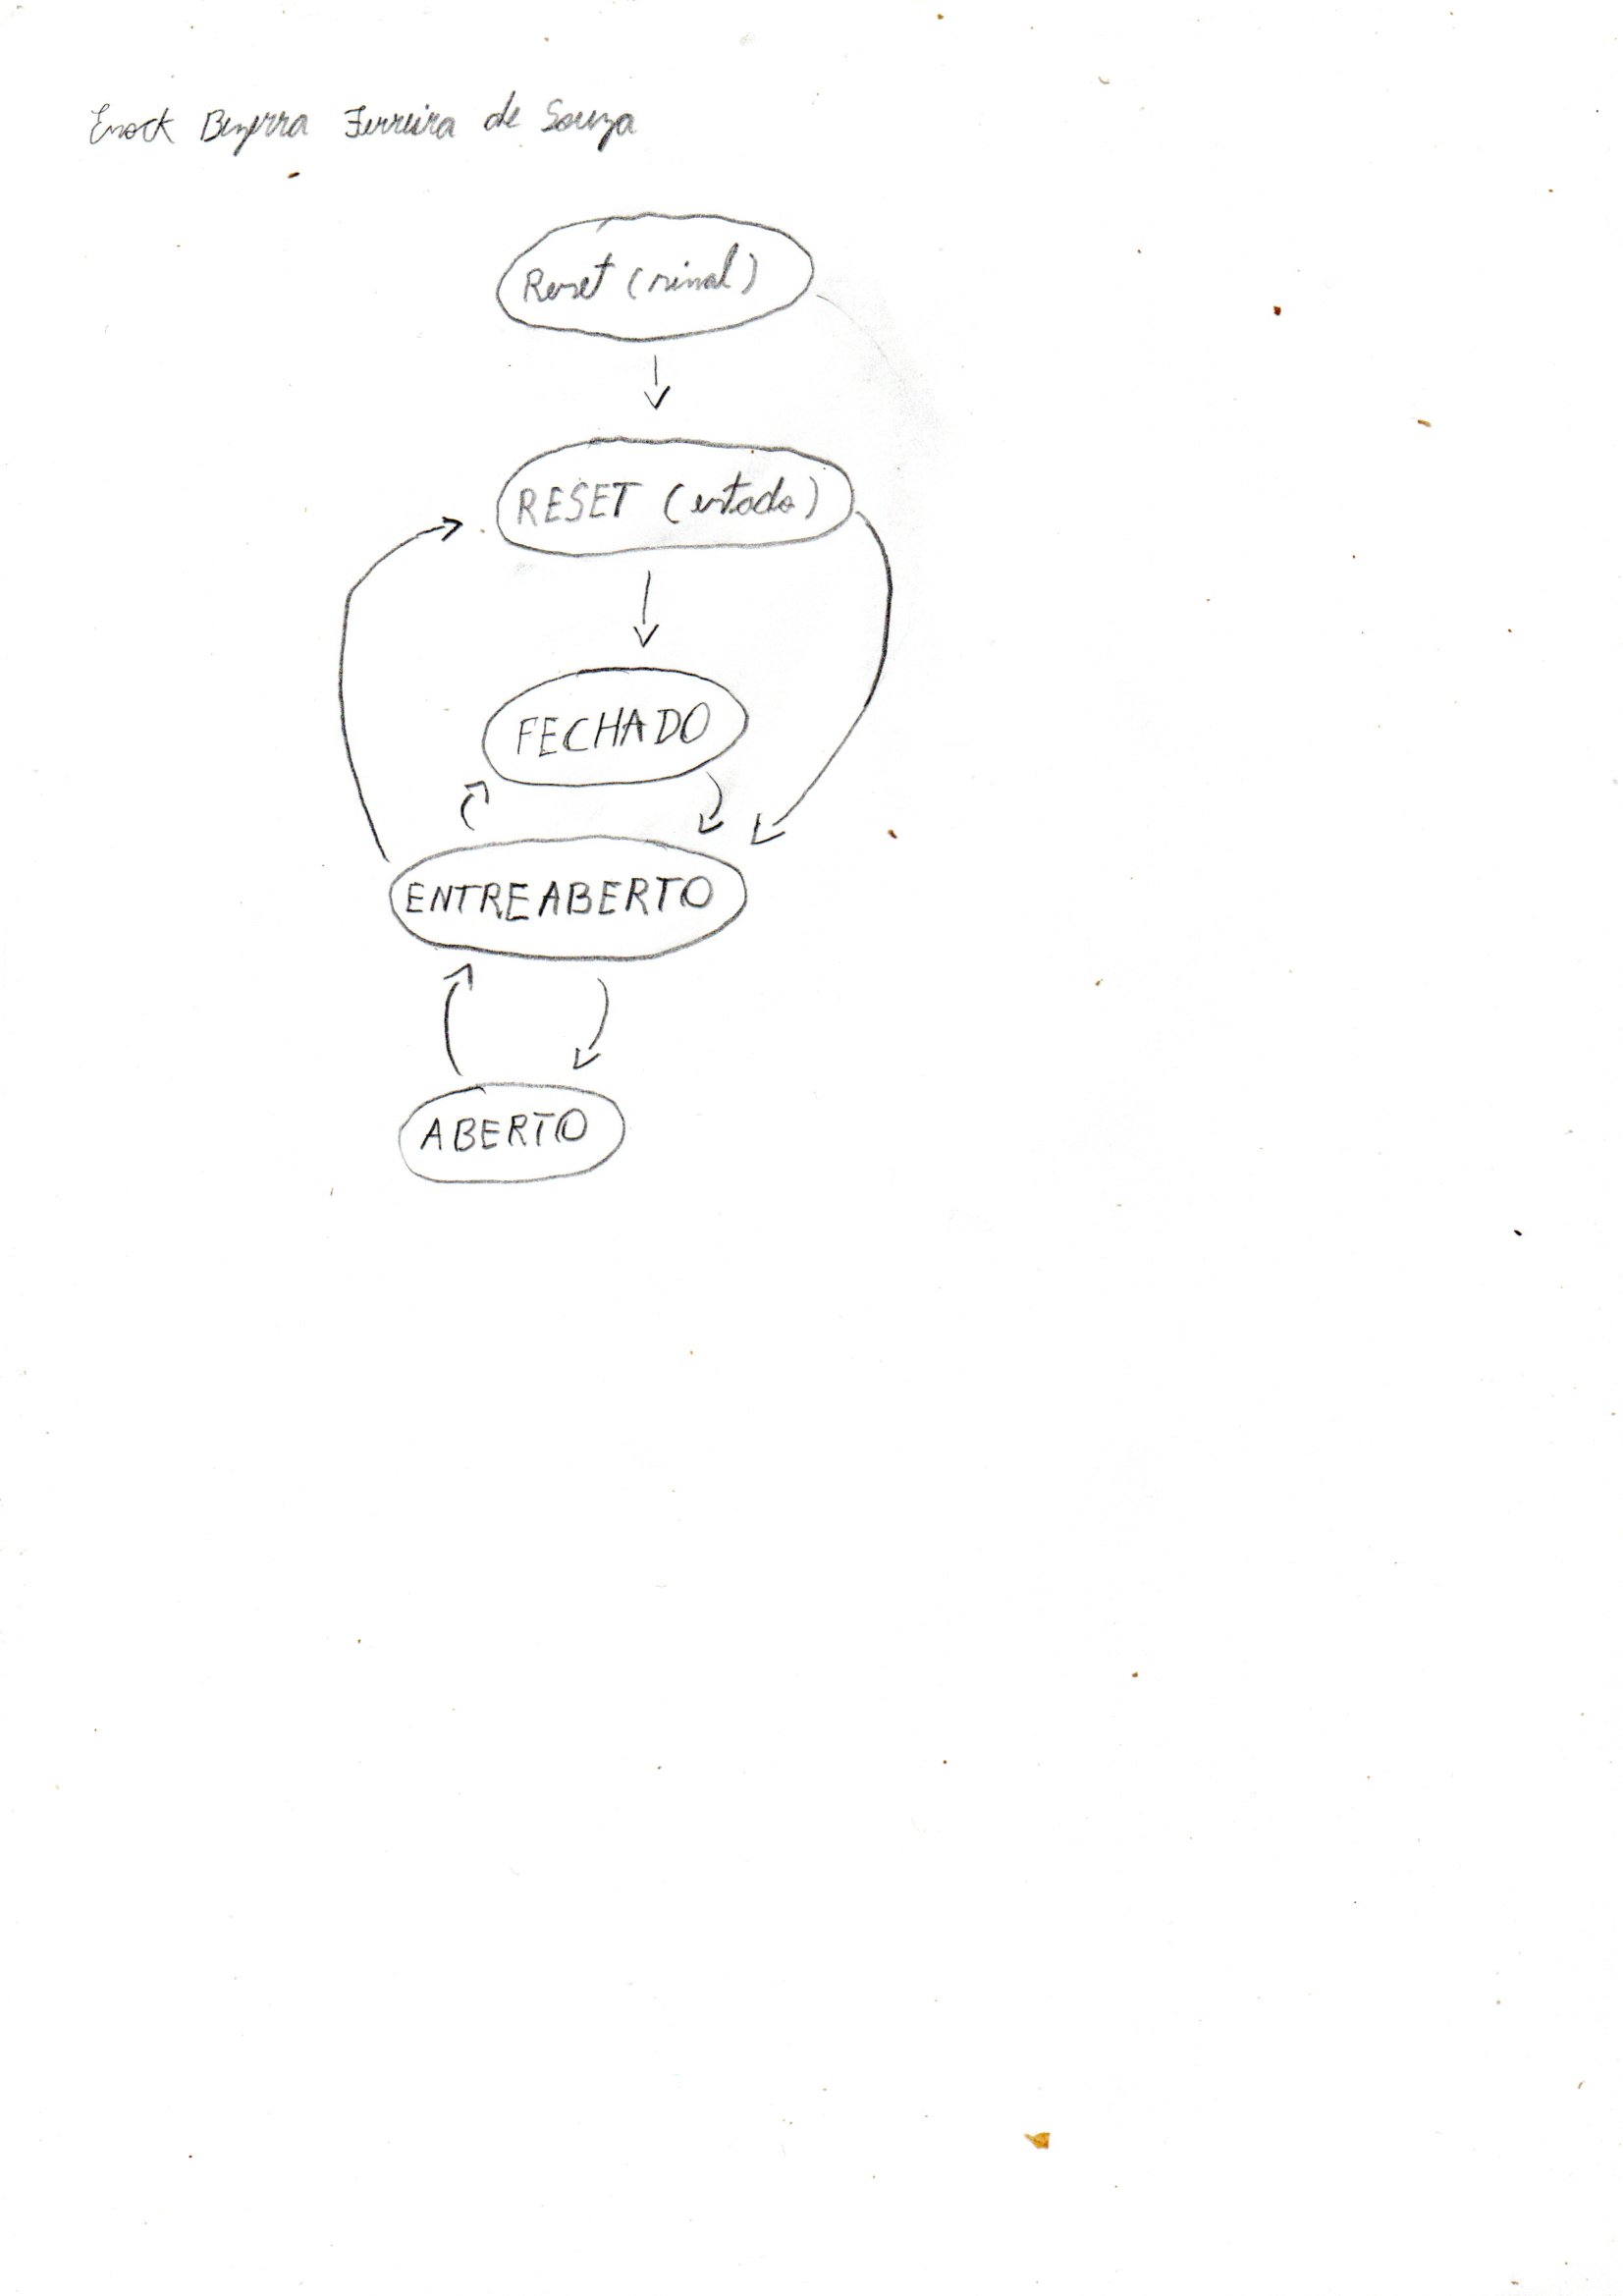 Enock Bezerra Ferreira de Souza
Reset (sinal)
RESET (estado)
FECHADO
ENTREABERTO
ABERTO